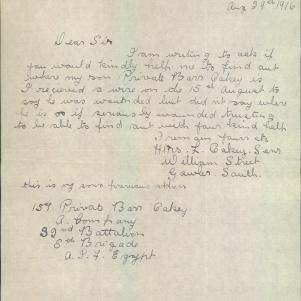 Aug 29th 1916
Dear Sir
I am writing to ask if
you would kindly help me to find out
where my son Private Barr Oakey is
I received a wire on the 15th August to
say he was wounded but did not say where
he is or if seriously wounded trusting
to be able to find out with your kind help
I remain yours etc
Mrs. L. Oakey. Senr
William Street
Gawler South.
this is my sons previous address
157 Private Barr Oakey
A. Company
32nd Battalion
8th Brigade
A. I. F. Egypt